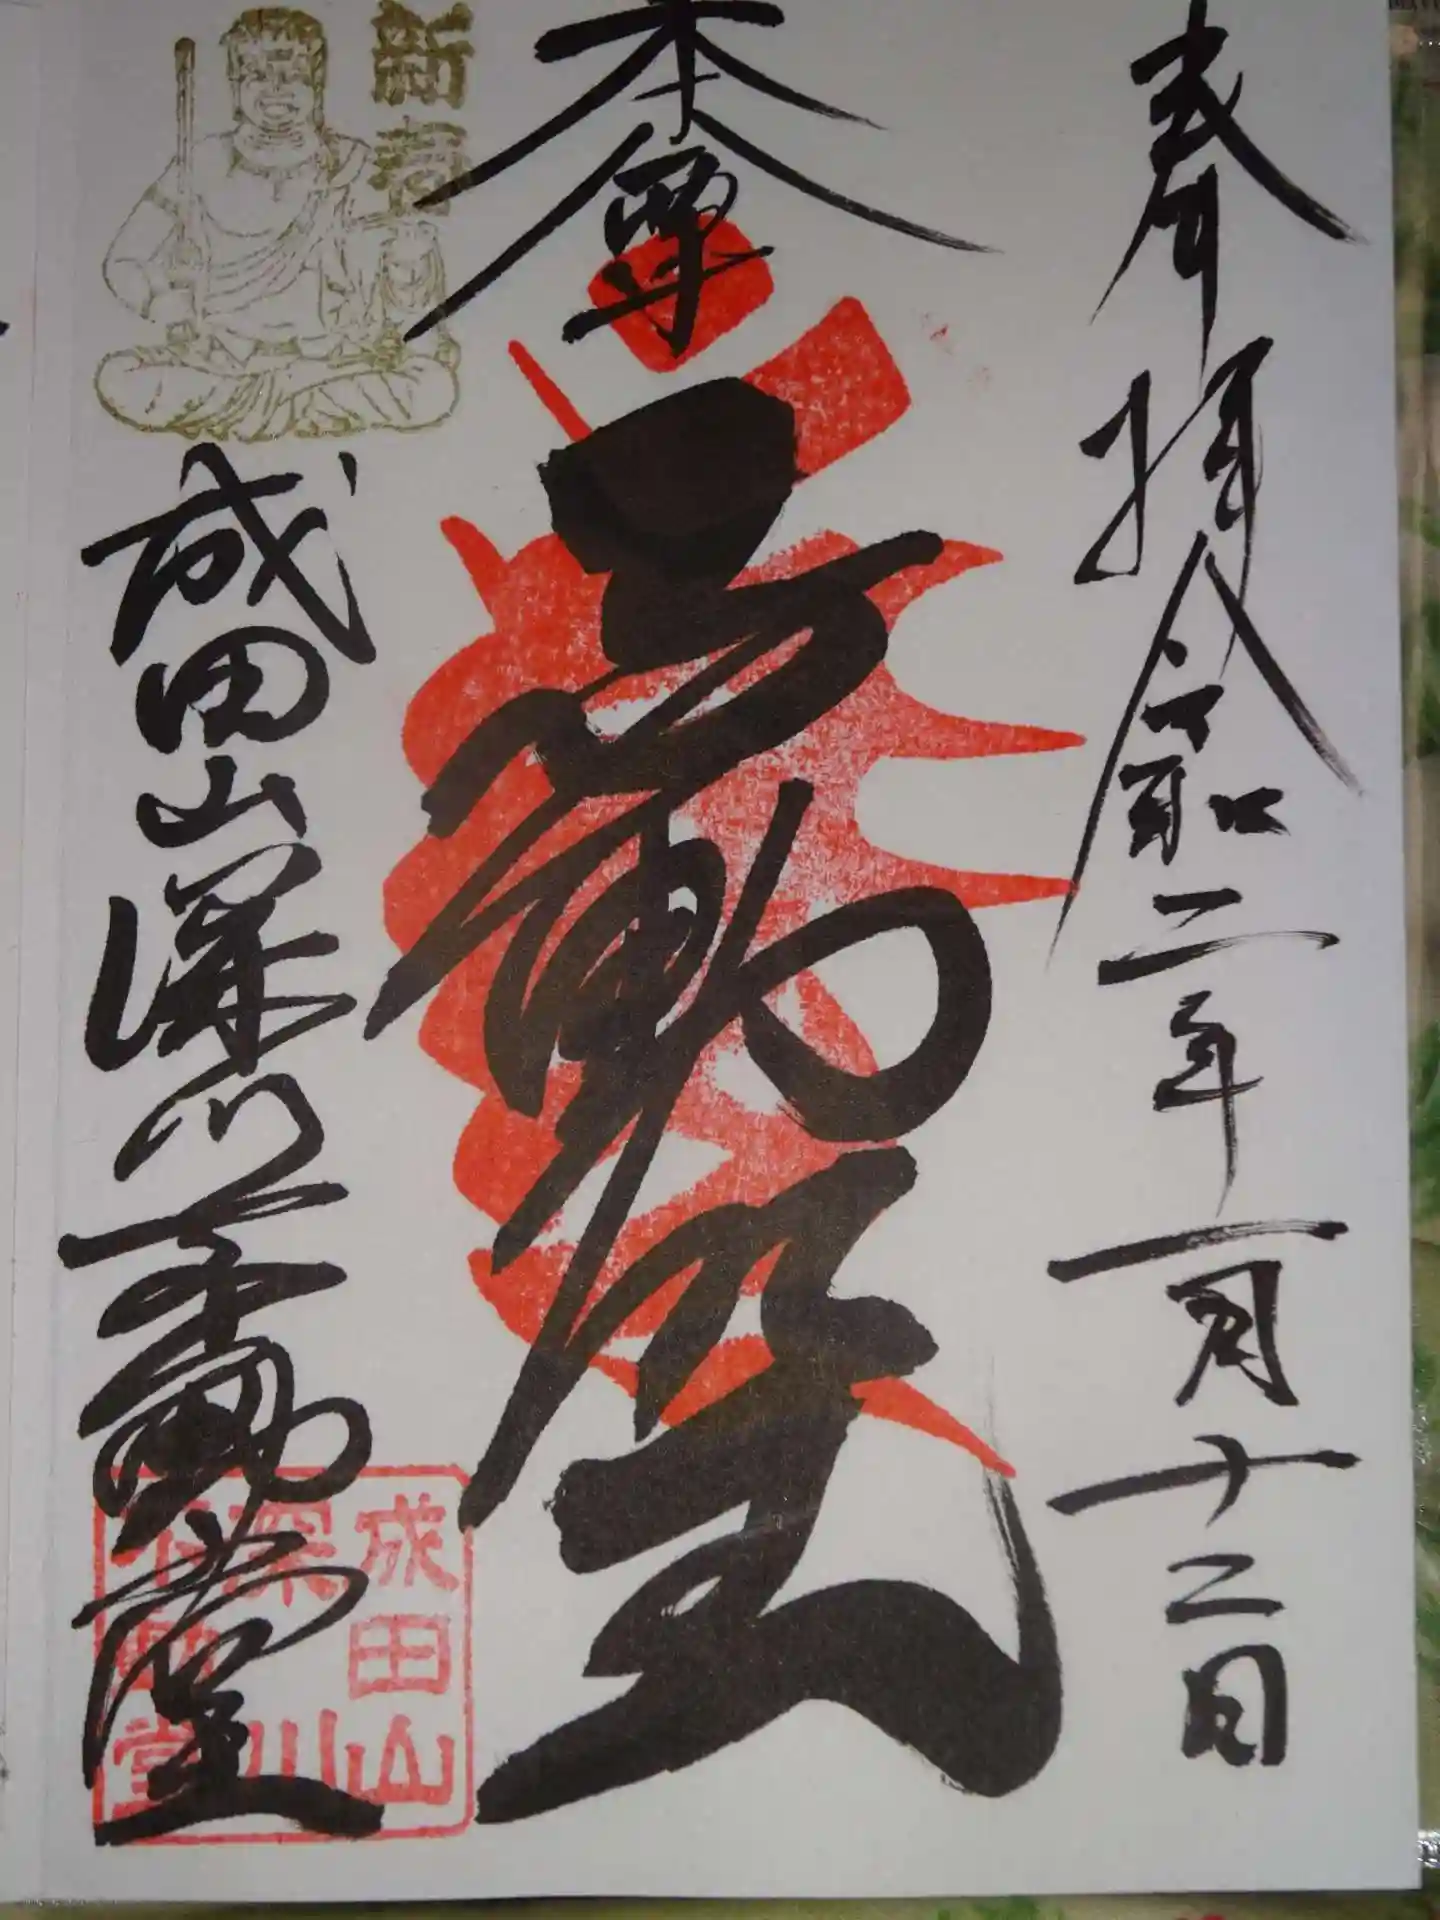 奉拝 令和二年一月十二日
本尊
不動尊
新春
成田山深川不動堂
成田山
深川
不動堂